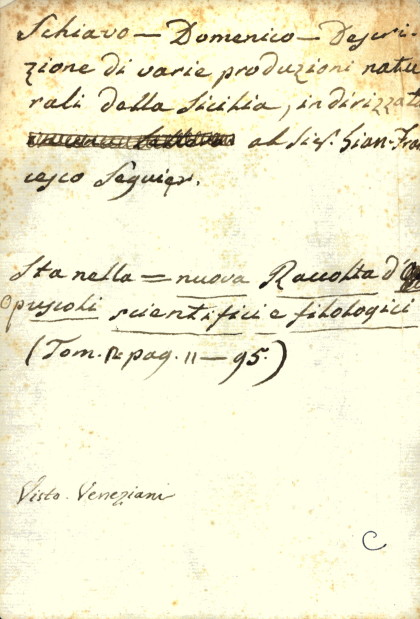 Schiavo — Domenico — Descri-
zione di varie produzioni natu
rali della Sicilia, indirizzat
al Sig. Gian-Fran
cesco Seguier.
Sta nella = nuova Raccolta d'
Opuscoli scientifici e filologici
(Tom. pag. 11 — 95.)
Visto. Veneziani
C